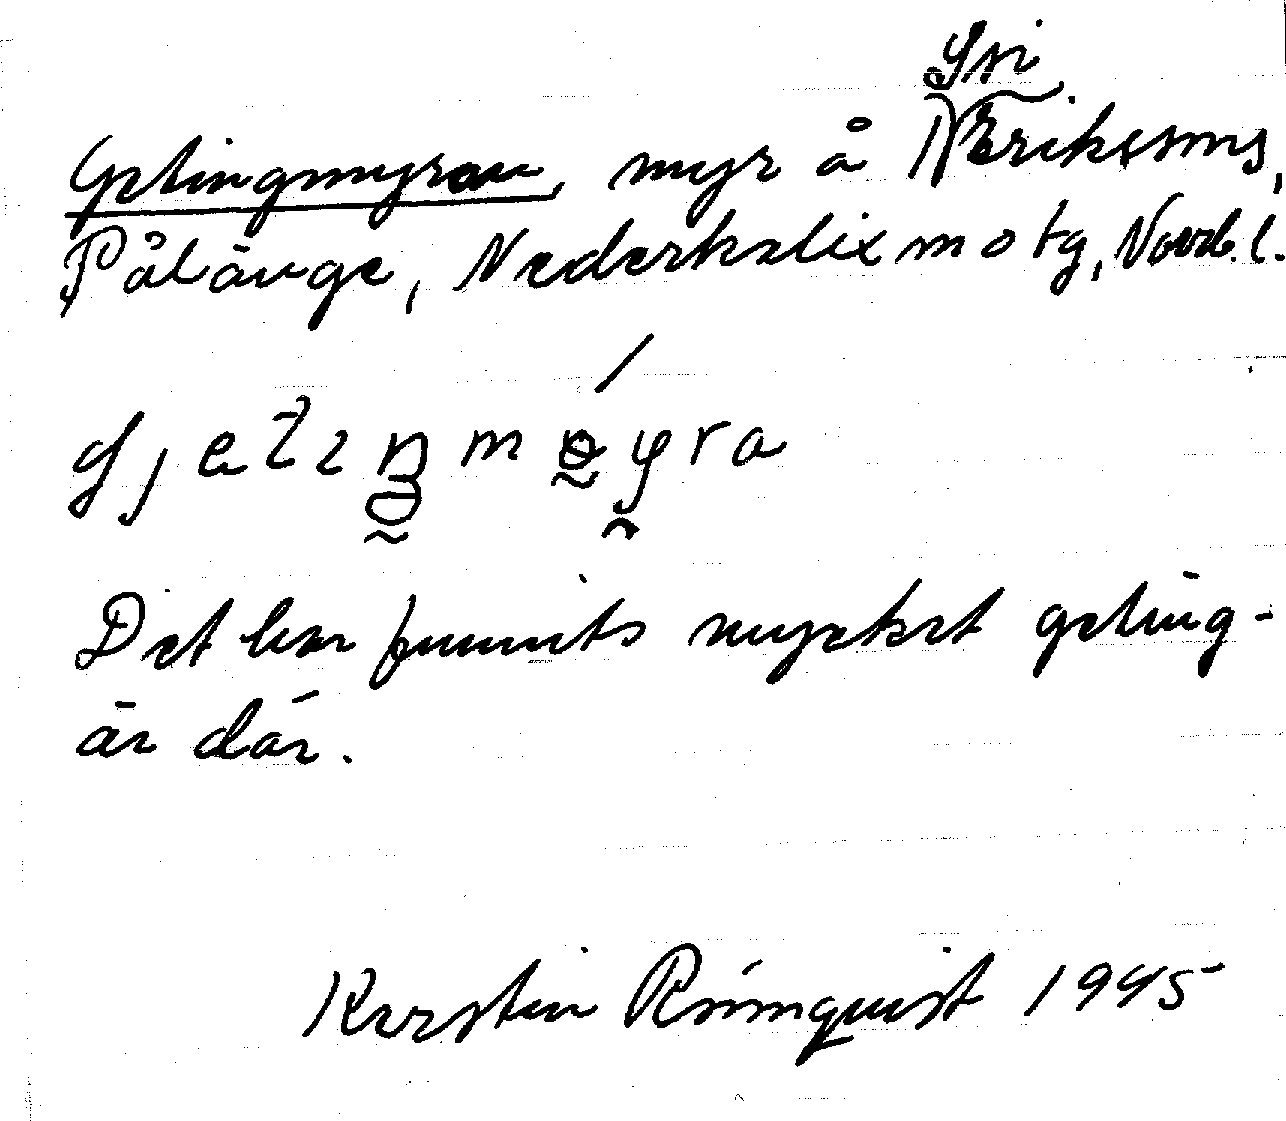 Getingmyran, myr å Erikssons,
Pålänge, Nederkalix m o tg, Norrb. l.
Det har funnits mycket geting-
ar där.
Kerstin Rönnquist 1945